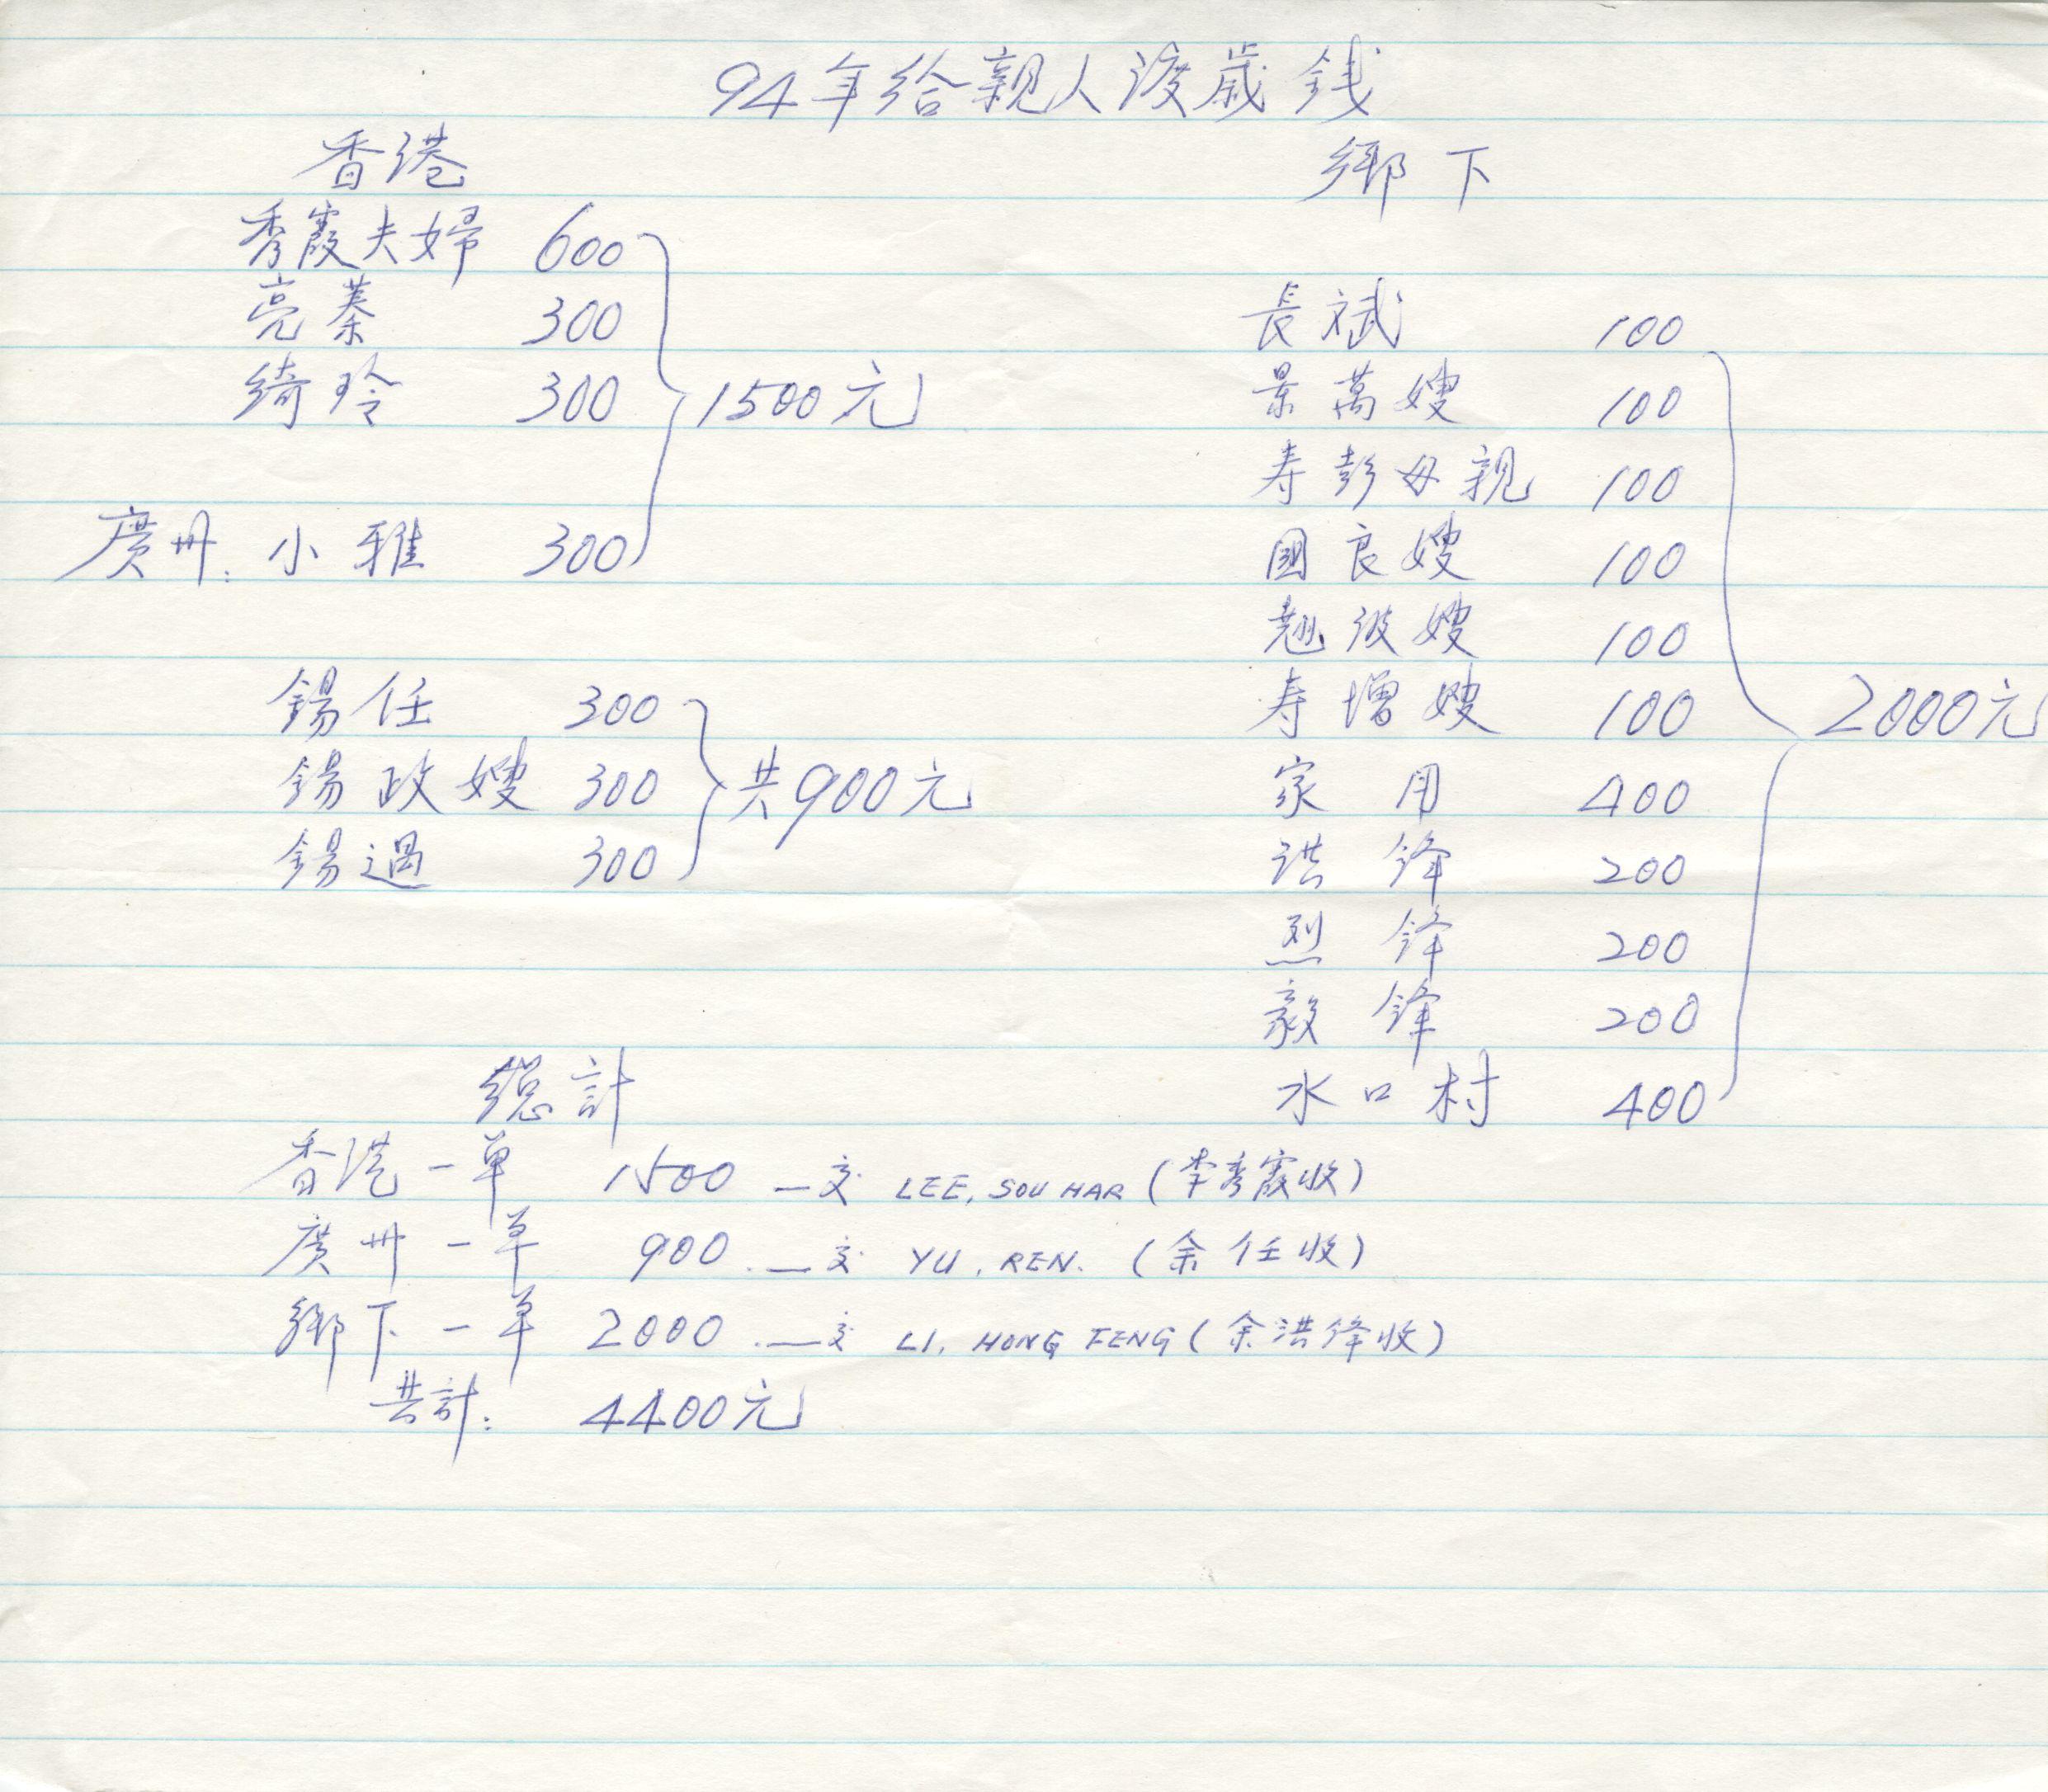 94年给親人渡歲錢
香港
秀霞夫婦 600
亮蓁 300
綺玲 300
1500元
廣州: 小雅 300
錫任 300
錫政嫂 300
錫過 300
共900元
鄉下
長斌 100
景萬嫂 100
寿彭母親 100
國良嫂 100
翹波嫂 100
寿增嫂 100
家用 400
洪鋒 200
烈鋒 200
毅鋒 200
水口村 400
2000元
總計
香港一單 1500 — 交 LEE, SOU HAR (李秀霞收)
廣州一單 900 — 交 YU, REN. (余任收)
鄉下一单 2000 — 交 LI, HONG FENG (余洪鋒收)
共計: 4400元